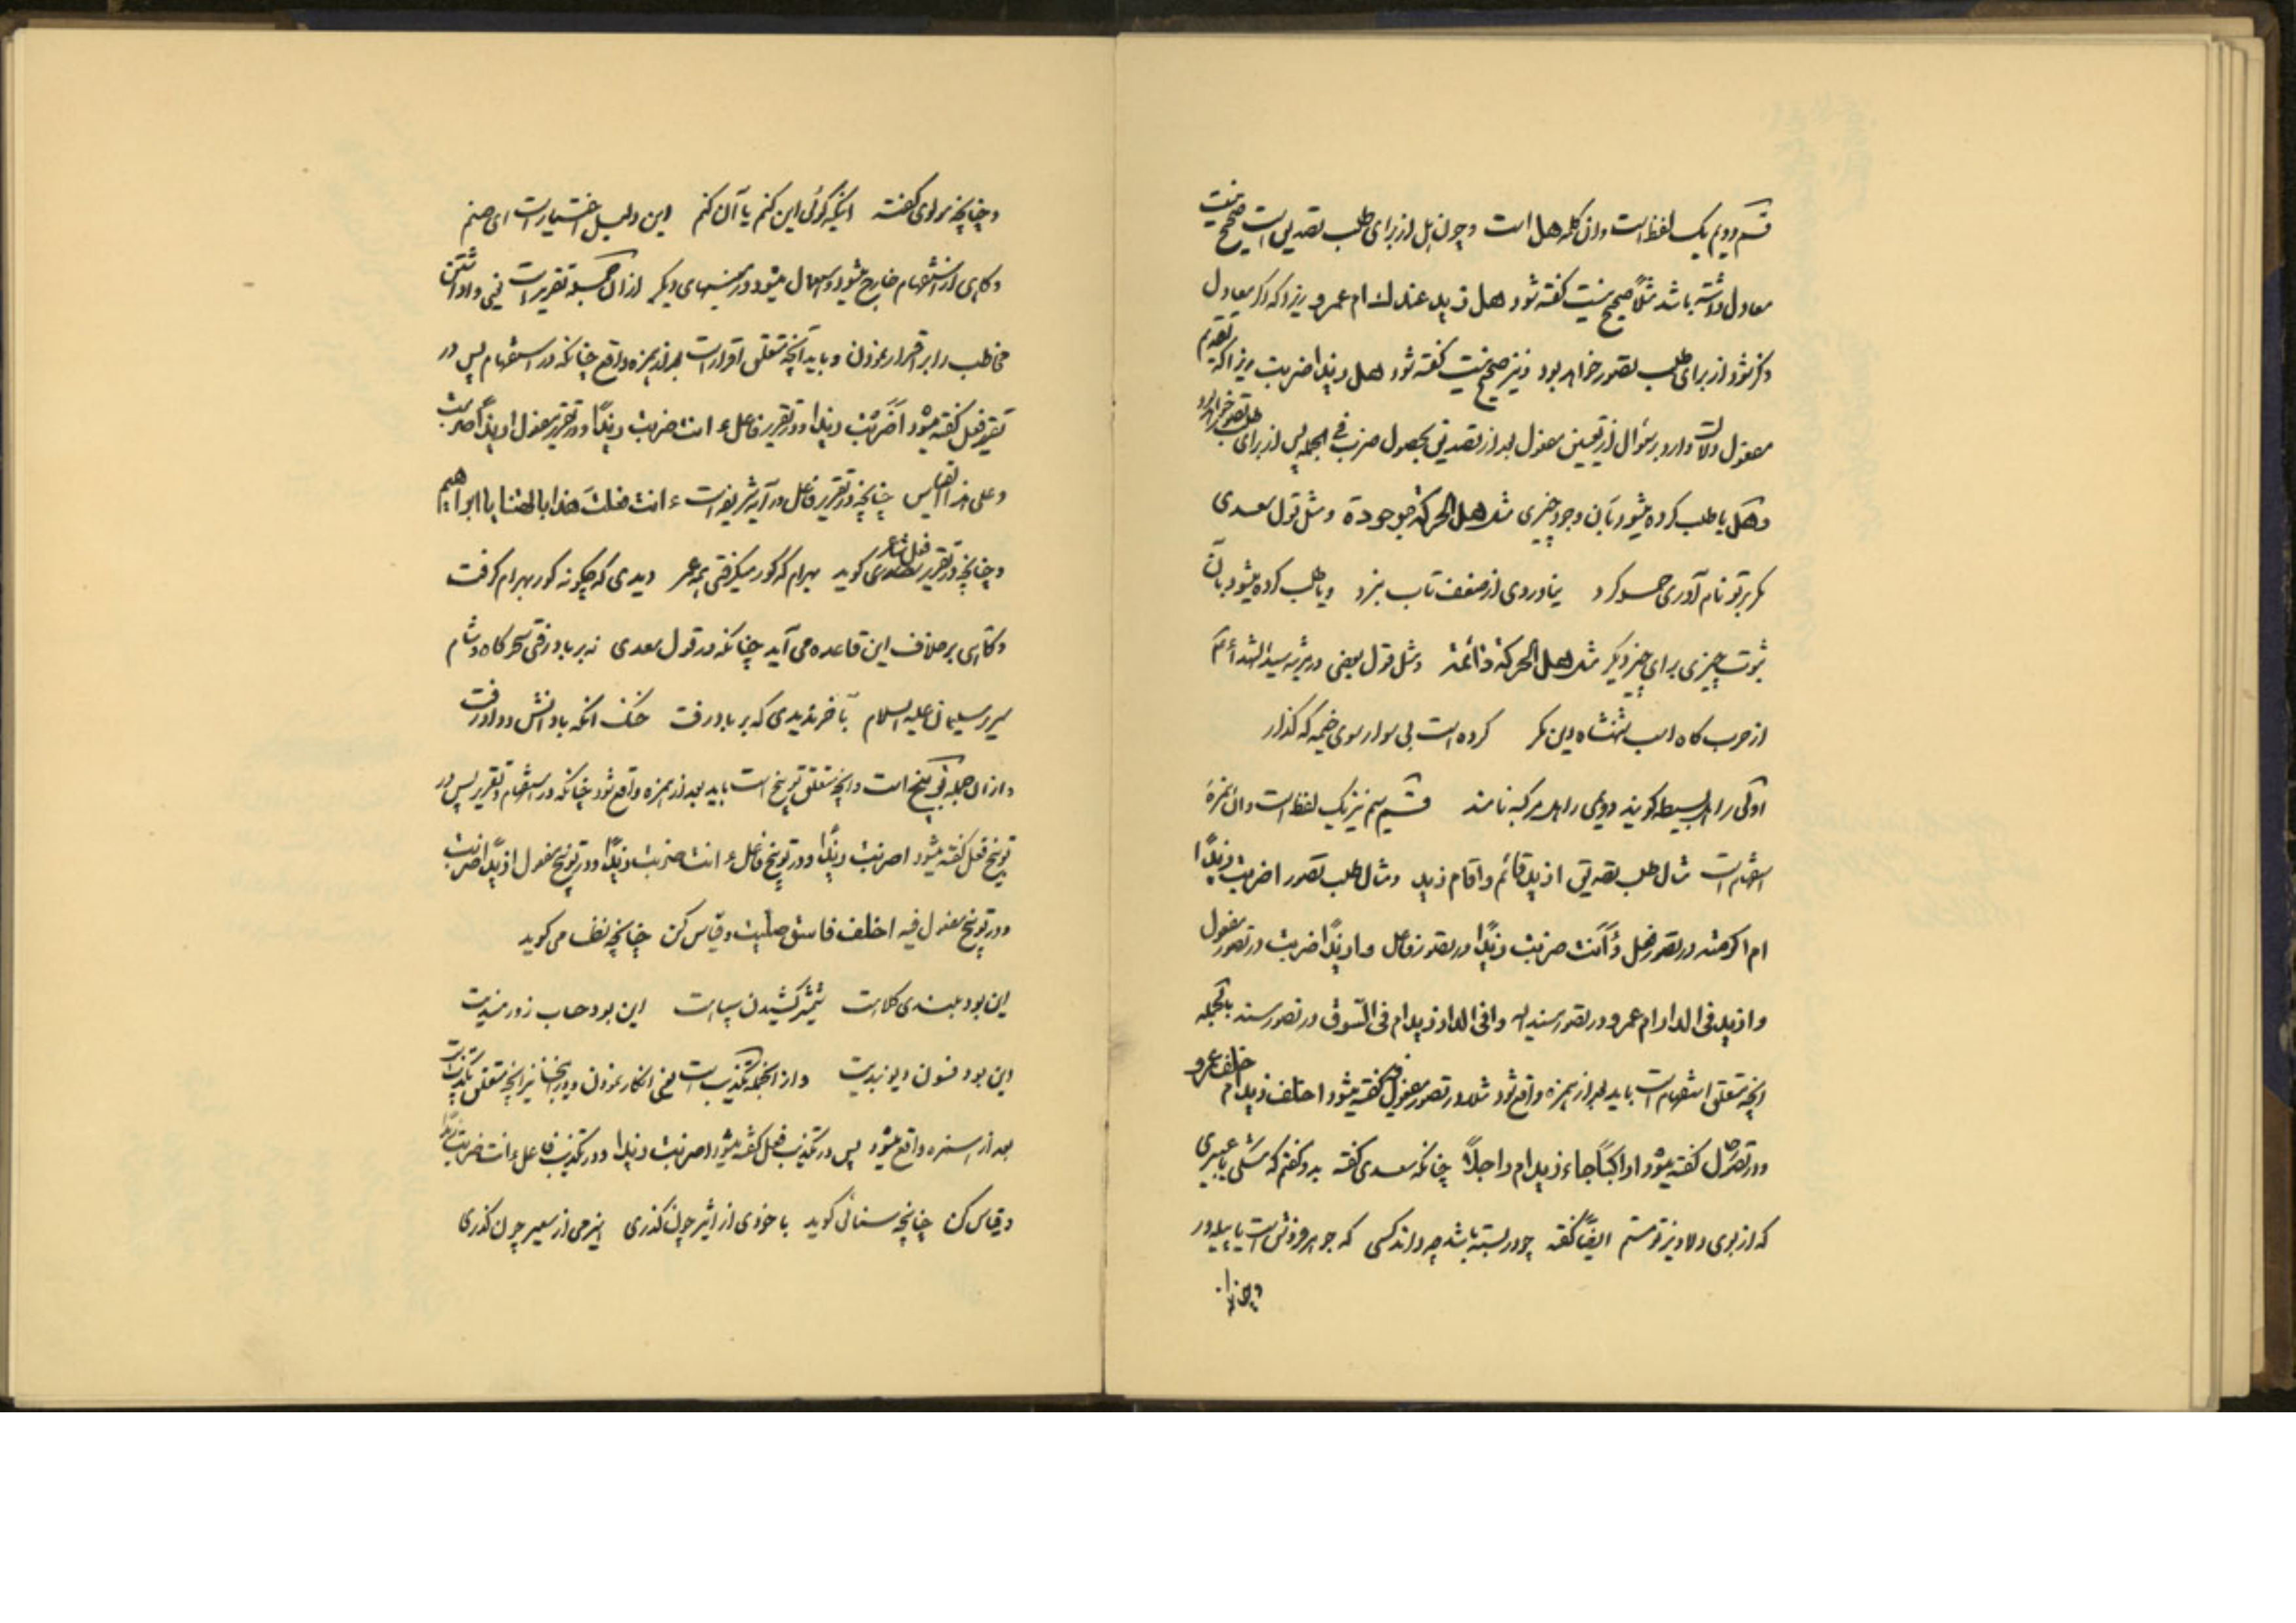 قسم دویم یک لفظ است وان کلمه هل است وچون هل از برای طلب تصدیق است صحیح نیست
معادل داشته باشد مثلاً صحیح نیست گفته شود هل زید عندک ام عمرو زیرا که اگر معادل
ذکر شود از برای طلب تصور خواهد بود ونیز صحیح نیست گفته شود هل زیدا ضربت زیرا که تقدیم
مفعول دلالت دارد بر سؤال از تعیین مفعول بعد از تصدیق بحصول ضرب فی الجمله پس از برای طلب تصور خواهد بود
وهل یا طلب کرده میشود بآن وجود چیزی مثل هل الحرکة موجودة ومثل قول سعدی
مگر بر تو نام آوری حمله کرد نیاوردی از ضعف تاب نبرد ویا طلب کرده میشود بآن
ثبوت چیزی برای چیز دیگر مثل هل الحرکة دائمة ومثل قول بعضی در مرثیه سید الشهداء
از حرب گاه اسب شهنشاه دین مگر کرده است بی سوار سوی خیمه گه گذار
اولی را هل بسیطه گویند ودویمی را هل مرکبه نامند قسم سیم نیز یک لفظ است وان همزهٔ
استفهام است مثال طلب تصدیق ازید قائم واقام زید ومثال طلب تصور اضربت زیدًا
ام اکرمته در تصور فعل وءأنت ضربت زیدًا در تصور فاعل وازیدًا ضربت در تصور مفعول
وازید فی الدار ام عمرو در تصور مسند الیه وافی الدار زید ام فی السّوق در تصور مسند بالجمله
انچه متعلق استفهام است باید بعد از همزه واقع شود مثلا در تصور مفعول فیه گفته میشود اخلف زید ام خلف عمرو
ودر تصور حال گفته میشود اراکبًا جاء زید ام راجلاً چنانکه سعدی گفته بدو گفتم که مشکی یا عبیری
که از بوی دلاویز تو مستم ایضًا گفته چو در بسته باشد چه داند کسی که جوهر فروش است یا پیله ور
وچنانچه مولوی گفته اینکه گوئی این کنم یا آن کنم این دلیل اختیار است ای صنم
وگاهی از استفهام خارج میشود واستعمال میشود در معنیهای دیگر از آن جمله تقریر است یعنی واداشتن
مخاطب را بر اقرار نمودن وباید آنچه متعلق اقرار است بعد از همزه واقع چنانکه در استفهام پس در
تقریر فعل گفته میشود اَضَرَبْتَ زیدا ودر تقریر فاعل ءانت ضربت زیدًا ودر تقریر مفعول ازیدًا ضربت
وعلی هذا القیاس چنانچه در تقریر فاعل در آیه شریفه است ءانت فعلتَ هذا بالهتنا یا ابراهیم
وچنانچه در تقریر فعل شاعر گوید بهرام که گور میگرفتی همه عمر دیدی که چگونه گور بهرام گرفت
وگاهی بر خلاف این قاعده می آید چنانکه در قول سعدی نه بر باد رفتی سحرگاه وشام
سریر سلیمان علیه السلام بآخر ندیدی که بر باد رفت خنک آنکه با دانش وداد رفت
واز ان جمله توبیخ است وانچه متعلق توبیخ است باید بعد از همزه واقع شود چنانکه در استفهام وتقریر پس در
توبیخ فعل گفته میشود اضربت زیدًا ودر توبیخ فاعل ءانت ضربت زیدًا ودر توبیخ مفعول ازیدًا ضربت
ودر توبیخ مفعول فیه اخلف فاسق صلّیت وقیاس کن چنانچه می گوید
این بود بلندی کلاهت شمشیر کشیدن سپاهت این بود حساب زورمندیت
این بود فسون دیو بندیت واز انجمله تکذیب است یعنی انکار نمودن ودر اینجا نیز انچه متعلق تکذیب است
بعد از همزه واقع میشود پس در تکذیب فعل گفته میشود اضربت زیدا ودر تکذیب فاعل ءانت ضربت زیدًا
وقیاس کن چنانچه سنائی گوید با خودی از اثیر چون گذری از سعیر چون گذری